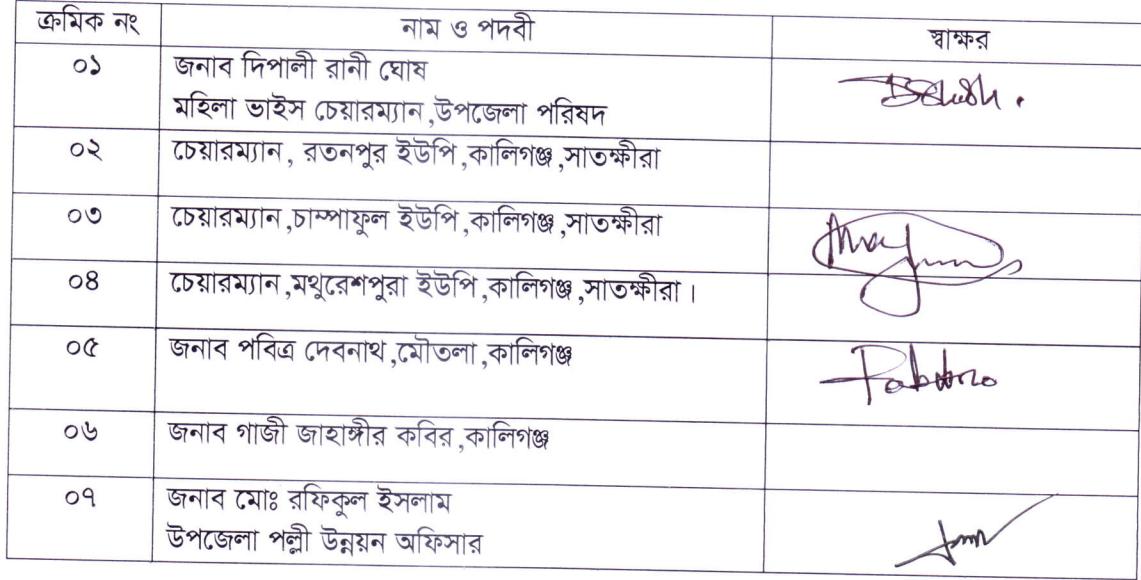 ক্রমিক নং নাম ও পদবী স্বাক্ষর
০১ জনাব দিপালী রানী ঘোষ
মহিলা ভাইস চেয়ারম্যান,উপজেলা পরিষদ
০২ চেয়ারম্যান, রতনপুর ইউপি,কালিগঞ্জ,সাতক্ষীরা
০৩ চেয়ারম্যান,চাম্পাফুল ইউপি,কালিগঞ্জ,সাতক্ষীরা
০৪ চেয়ারম্যান,মথুরেশপুরা ইউপি,কালিগঞ্জ,সাতক্ষীরা।
০৫ জনাব পবিত্র দেবনাথ,মৌতলা,কালিগঞ্জ
০৬ জনাব গাজী জাহাঙ্গীর কবির,কালিগঞ্জ
০৭ জনাব মোঃ রফিকুল ইসলাম
উপজেলা পল্লী উন্নয়ন অফিসার